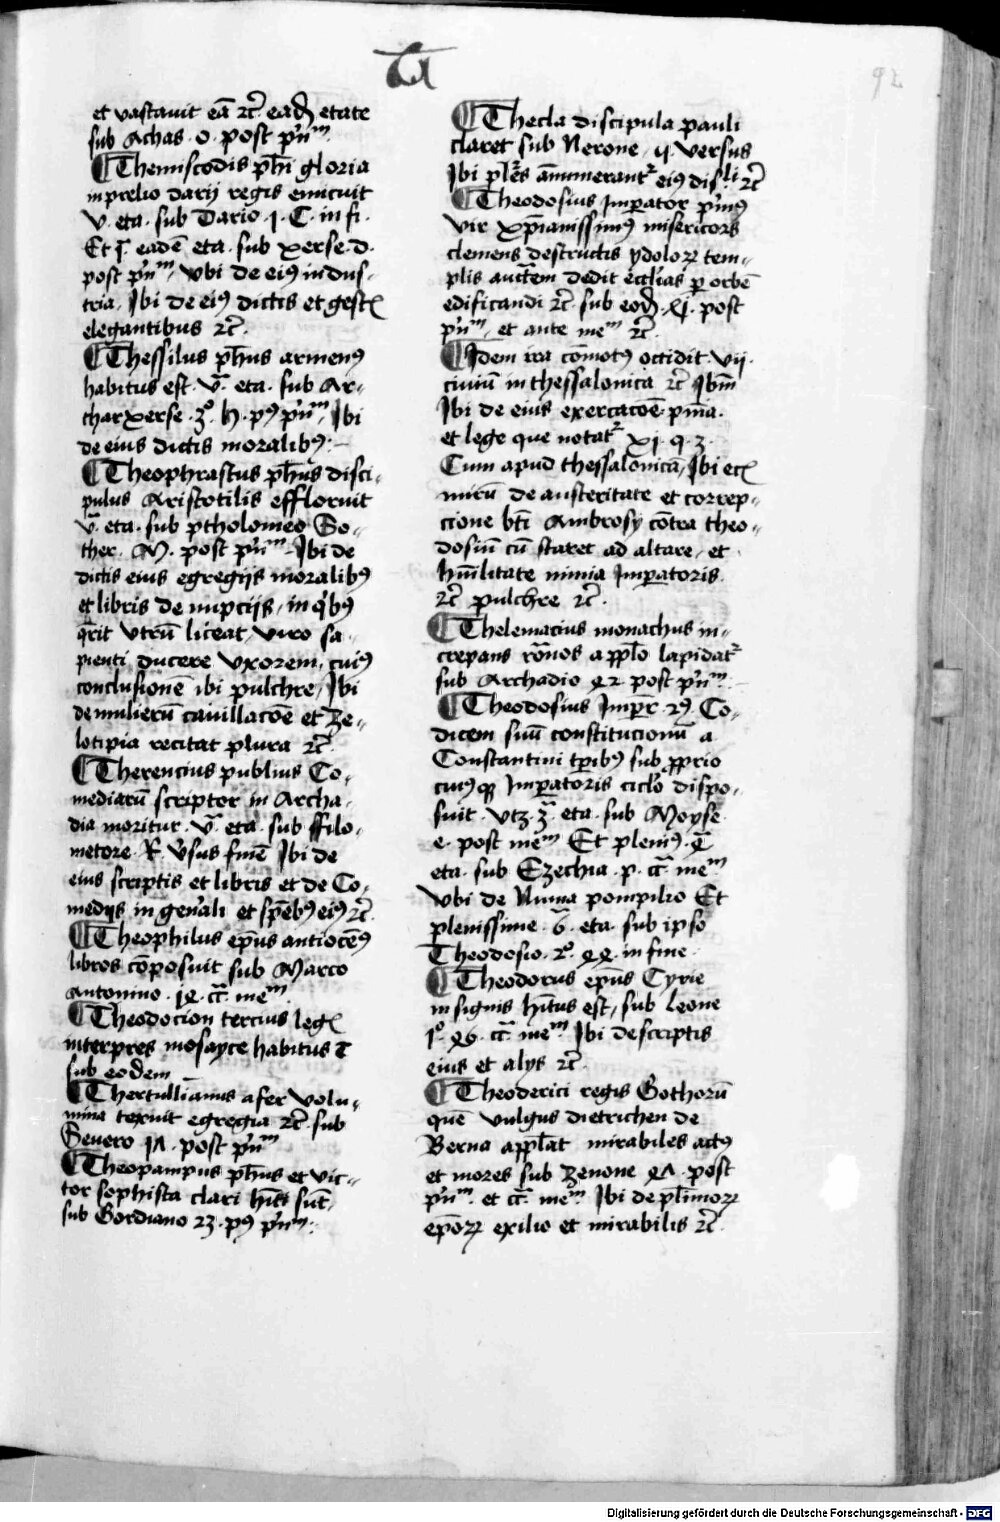 92
et vastauit eā ⁊c̄ eadē etate
sub Achas · o · post pͥnᵐ
¶ Themiscodis ph̄i gloria
in prelio darij regis emicuit
v · eta · sub Dario · i · C · in fi ·
Et q̄ eadē eta · sub xerse · d ·
post pͥnᵐ, vbi de eiꝰ indus-
tria, Ibi de eiꝰ dictis et gestꝭ
elegantibus ⁊c̄
¶ Thessilus ph̄us armenꝰ
habitus est · v̄ · eta · sub Ar-
tharxerse · 3° · h · pꝰ pͥnᵐ, Ibi
de eius dictis moralibꝰ
¶ Theophrastus ph̄us disci-
pulus Aristotilis effloruit
v̄ · eta · sub ptholomeo So-
ther · M · post pͥnᵐ Ibi de
dictis eius egregijs moralibꝰ
et libris de nupcijs, in qͥbꝰ
q̄rit vtrū liceat, viro sa-
pienti ducere vxorem, cuiꝰ
conclusionē ibi pulchre, Ibi
de mulierū cauillacōe et ze-
lotipia recitat plura ⁊c̄
¶ Therencius publius Co-
mediarū scriptor in Archa-
dia moritur · v̄ · eta · sub ffilo-
metore · R · v̄sus finē Ibi de
eius scriptis et libris et de Co-
medijs in gen̄ali et spēbꝰ eiꝰ ⁊c̄
¶ Theophilus ep̄us antiocēꝰ
libros cōposuit sub Marco
Antonino · 18 · cͣ meᵐ
¶ Theodocion tercius legꝭ
interpres mosayce habitus ē
sub eodem
¶ Thertullianus afer volu-
mina texuit egregia ⁊c̄ sub
Seuero 17 · post pͥnᵐ
¶ Theopampus ph̄us et vic-
tor sophista clari hīti sūt,
sub Gordiano 23 · pꝰ pͥnᵐ
¶ Thecla discipula pauli
claret sub Nerone, ij · versus
Ibi pl̄es ānumerantᷣ eiꝰ disˡⁱ ⁊c̄
¶ Theodosius Imperator pͥmꝰ
vir xp̄ianissimꝰ misericors
clemens destructis ydoloꝝ tem-
plis auct̄em dedit eccl̄ias ꝑ orbē
edificandi ⁊c̄ sub eodē · xj · post
pͥnᵐ, et ante meᵐ ⁊c̄
¶ Idem ira cōmotꝰ occidit vij ·
ciuiū in thessalonica ⁊c̄ Ibm̄
Ibi de eius exercacōe pm̄a ·
et lege que notatᷣ xj · q · 3 ·
Cum apud thessalonicā, Ibi ecꝭ
mirū de austeritate et correp-
cione bt̄i Ambrosy cōtra theo-
dosiū cū staret ad altare, et
hūilitate nimia Imperatoris
⁊c̄ pulchre ⁊c̄ ·
¶ Thelemacius monachus in-
crepans rōnos a pplō lapidatᷣ
sub Archadio 82 post pͥnᵐ
¶ Theodosius Impr̄ 2ꝰ Co-
dicem suū constitucionū a
Constantini tꝑibꝰ sub ꝓprio
cuiꝰqꝫ Imperatoris titlo dispo-
suit · vtꝫ 3̄ · eta · sub Moyse
e · post meᵐ Et pleniꝰ · q̄
eta · sub Ezechia · p · cͣ meᵐ
vbi de Numa pompilio Et
plenissime · 6̄ · eta · sub ipso
Theodosio · 2° · 88 · in fine
¶ Theodorus ep̄us Cyrie
insignis hītus est, sub leone
1° 86 · cͣ meᵐ Ibi de scriptis
eius et alys ⁊c̄
¶ Theoderici regis Gothorū
quē vulgus dietrichen de
Berna appl̄at mirabiles actꝰ
et mores sub zenone 87 · post
pͥnᵐ et cͣ meᵐ Ibi de pl̄imoꝝ
ep̄oꝝ exilio et mirabilis ⁊c̄
Digitalisierung gefördert durch die Deutsche Forschungsgemeinschaft - DFG